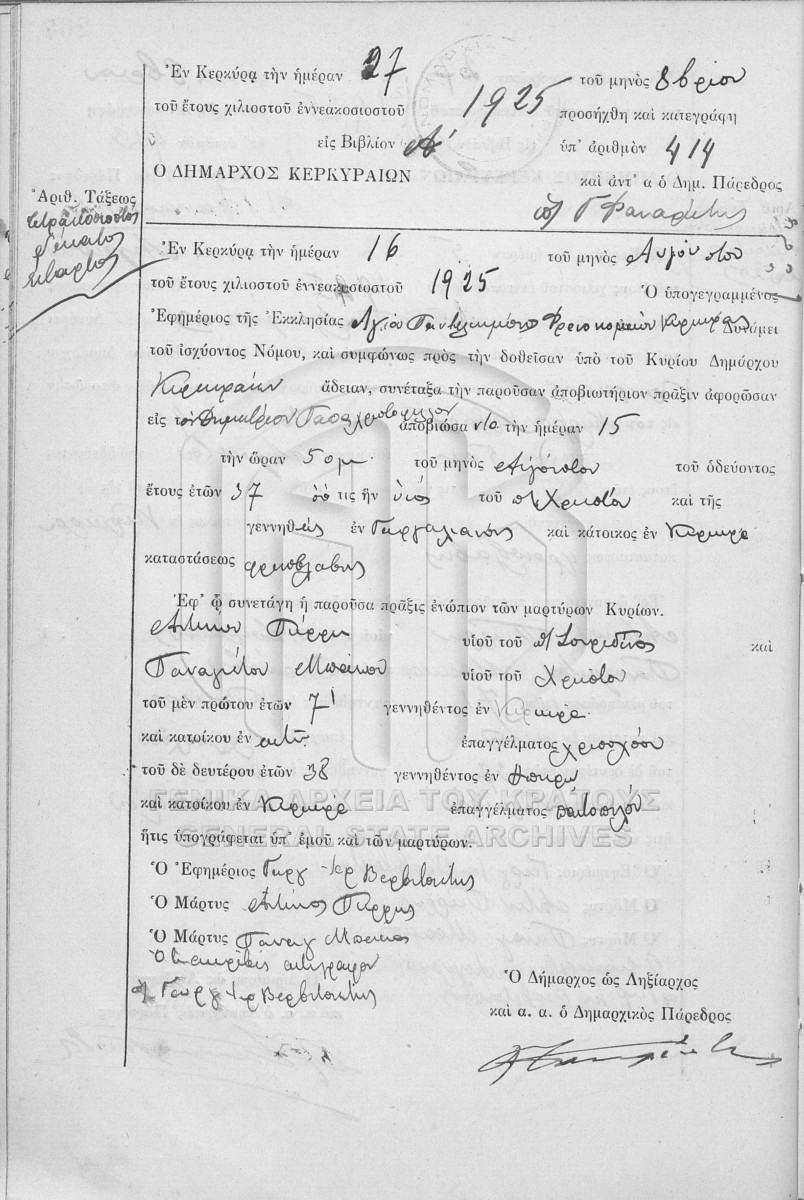 Ἐν Κερκύρᾳ τὴν ἡμέραν 27 τοῦ μηνὸς 8βρίου
τοῦ ἔτους χιλιοστοῦ ἐννεακοσιοστοῦ 1925 προσήχθη καὶ κατεγράφη
εἰς Βιβλίον Α′ ὑπ᾽ ἀριθμὸν 414
Ο ΔΗΜΑΡΧΟΣ ΚΕΡΚΥΡΑΙΩΝ
καὶ ἀντ᾽ α ὁ Δημ. Πάρεδρος
Ἀριθ. Τάξεως
τετρακοσιοστὸς
δέκατος
τέταρτος
Ἐν Κερκύρᾳ τὴν ἡμέραν 16 τοῦ μηνὸς Αὐγούστου
τοῦ ἔτους χιλιοστοῦ ἐννεακοσιοστοῦ 1925 Ὁ ὑπογεγραμμένος
Ἐφημέριος τῆς Ἐκκλησίας Ἁγίου Παντελεήμονος Φρενοκομείου Κερκύρας Δυνάμει
τοῦ ἰσχύοντος Νόμου, καὶ συμφώνως πρὸς τὴν δοθεῖσαν ὑπὸ τοῦ Κυρίου Δημάρχου
Κερκυραίων ἄδειαν, συνέταξα τὴν παροῦσαν ἀποβιωτήριον πρᾶξιν ἀφορῶσαν
εἰς τὸν Δημήτριον ἀποβιώσαντα τὴν ἡμέραν 15
τὴν ὥραν 5 πμ. τοῦ μηνὸς Αὐγούστου τοῦ ὁδεύοντος
ἔτους ἐτῶν 37 ὅστις ἦν υἱὸς τοῦ π Χρίστου καὶ τῆς
γεννηθεὶς ἐν Γαργαλιάνοις καὶ κάτοικος ἐν Κερκύρᾳ
καταστάσεως φρενοβλαβὴς
Ἐφ᾽ ᾧ συνετάγη ἡ παροῦσα πρᾶξις ἐνώπιον τῶν μαρτύρων Κυρίων.
Ἀντωνίου υἱοῦ τοῦ π Σπυρίδωνος καὶ
Παναγιώτου υἱοῦ τοῦ Χρίστου
τοῦ μὲν πρώτου ἐτῶν 71 γεννηθέντος ἐν Κερκύρᾳ
καὶ κατοίκου ἐν αὐτῇ ἐπαγγέλματος χρυσοχόου
τοῦ δὲ δευτέρου ἐτῶν 38 γεννηθέντος ἐν Ἠπείρῳ
καὶ κατοίκου ἐν Κερκύρᾳ ἐπαγγέλματος
ΓΕΝΙΚΑ ΑΡΧΕΙΑ ΤΟΥ ΚΡΑΤΟΥΣ
GENERAL STATE ARCHIVES
ἥτις ὑπογράφεται ὑπ᾽ ἐμοῦ καὶ τῶν μαρτύρων.
Ὁ Ἐφημέριος Γεώργ Ἱερ Βερβιτσιώτης
Ὁ Μάρτυς Ἀντώνιος
Ὁ Μάρτυς Παναγ
ἀκριβὲς ἀντίγραφον
Γεώργ Ἱερ Βερβιτσιώτης
Ὁ Δήμαρχος ὡς Ληξίαρχος
καὶ α. α. ὁ Δημαρχικὸς Πάρεδρος